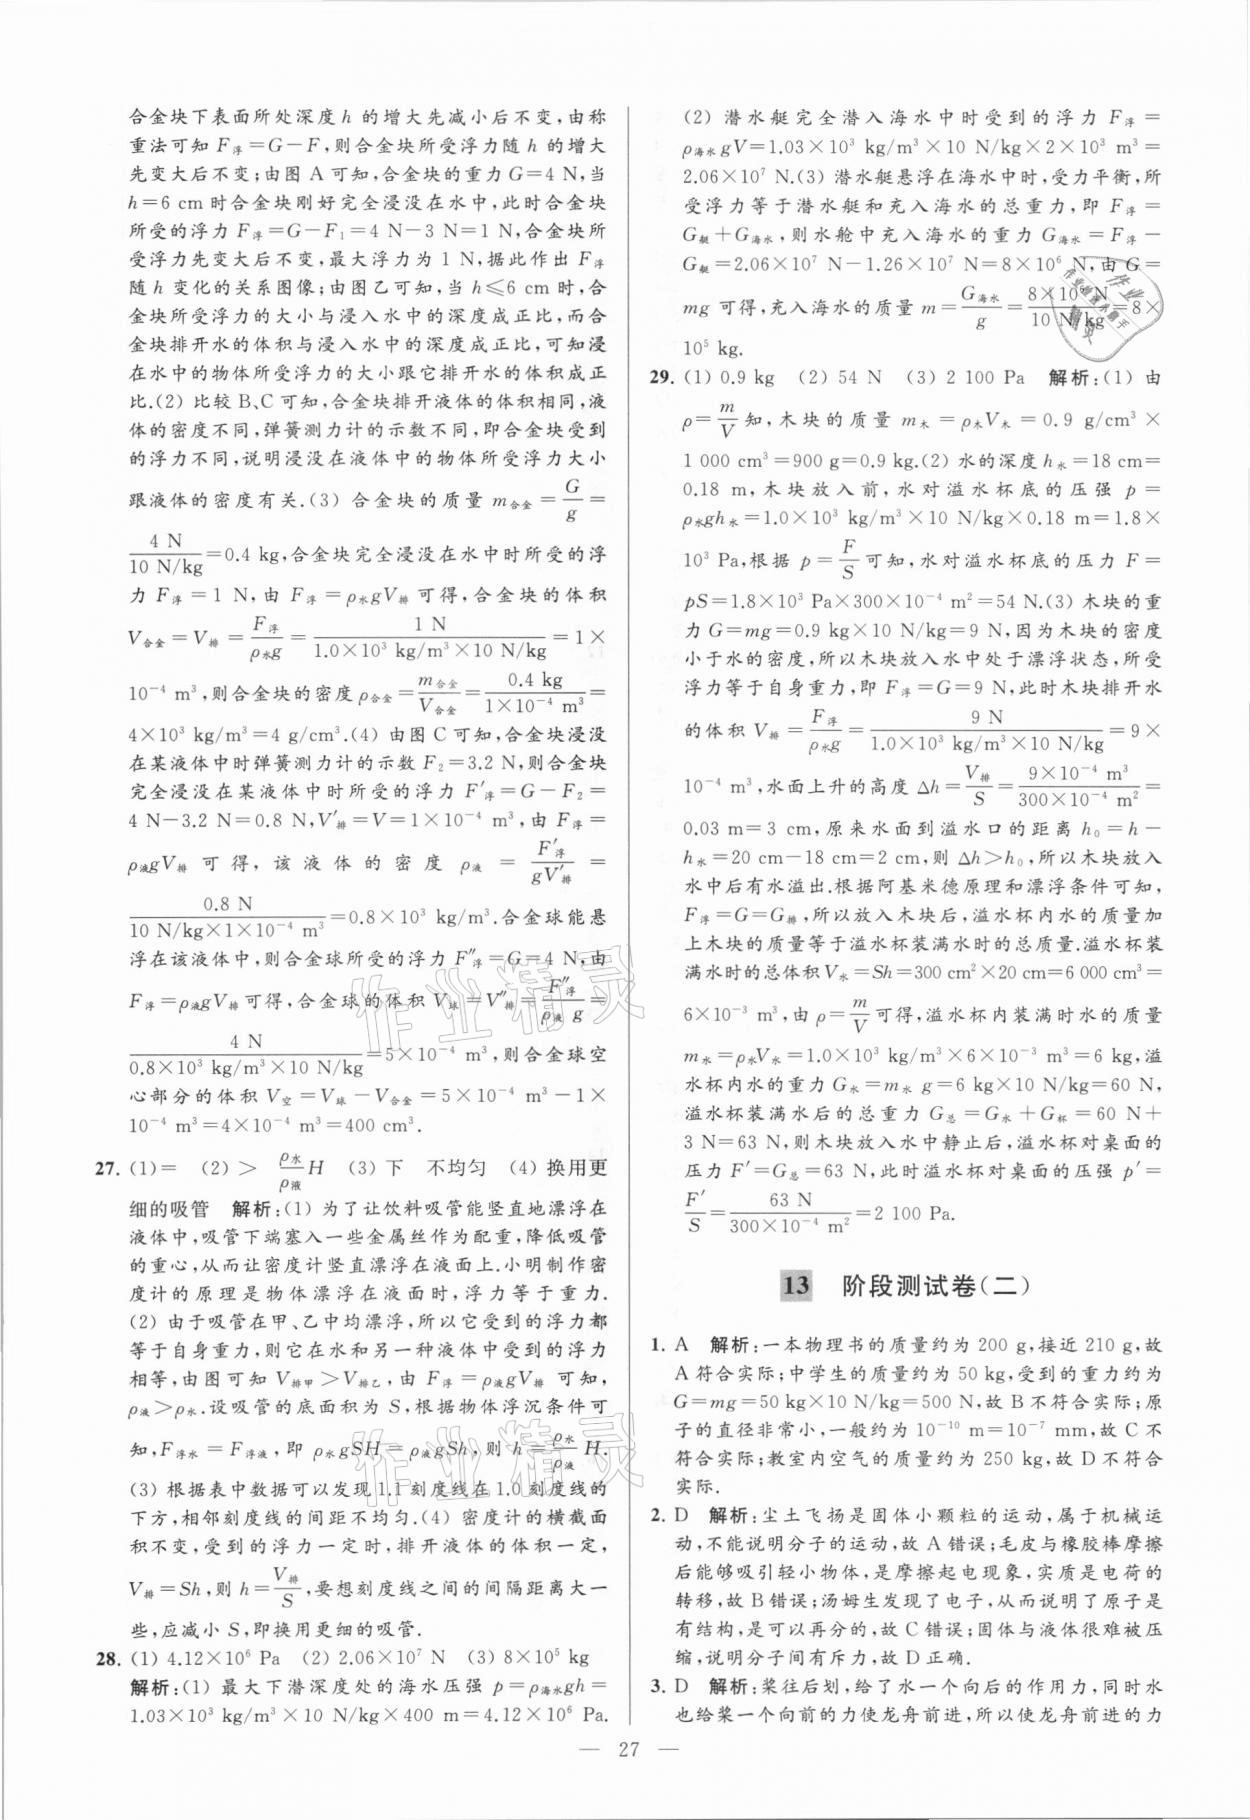 合金块下表面所处深度 h 的增大先减小后不变,由称
重法可知 F浮=G-F,则合金块所受浮力随 h 的增大
先变大后不变;由图 A 可知,合金块的重力 G=4 N,当
h=6 cm 时合金块刚好完全浸没在水中,此时合金块
所受的浮力 F浮=G-F₁=4 N-3 N=1 N,合金块所
受浮力先变大后不变,最大浮力为 1 N,据此作出 F浮
随 h 变化的关系图像;由图乙可知,当 h≤6 cm 时,合
金块所受浮力的大小与浸入水中的深度成正比,而合
金块排开水的体积与浸入水中的深度成正比,可知浸
在水中的物体所受浮力的大小跟它排开水的体积成正
比.(2) 比较 B、C 可知,合金块排开液体的体积相同,液
体的密度不同,弹簧测力计的示数不同,即合金块受到
的浮力不同,说明浸没在液体中的物体所受浮力大小
跟液体的密度有关.(3) 合金块的质量 m合金=G/g=
4 N/10 N/kg=0.4 kg,合金块完全浸没在水中时所受的浮
力 F浮=1 N,由 F浮=ρ水gV排可得,合金块的体积
V合金=V排=F浮/ρ水g=1 N/1.0×10³ kg/m³×10 N/kg=1×
10⁻⁴ m³,则合金块的密度 ρ合金=m合金/V合金=0.4 kg/1×10⁻⁴ m³=
4×10³ kg/m³=4 g/cm³.(4) 由图 C 可知,合金块浸没
在某液体中时弹簧测力计的示数 F₂=3.2 N,则合金块
完全浸没在某液体中时所受的浮力 F′浮=G-F₂=
4 N-3.2 N=0.8 N,V′排=V=1×10⁻⁴ m³,由 F浮=
ρ液gV排可得,该液体的密度 ρ液=F′浮/gV′排=
0.8 N/10 N/kg×1×10⁻⁴ m³=0.8×10³ kg/m³.合金球能悬
浮在该液体中,则合金球所受的浮力 F″浮=G=4 N,由
F浮=ρ液gV排可得,合金球的体积 V球=V″排=F″浮/ρ液g=
4 N/0.8×10³ kg/m³×10 N/kg=5×10⁻⁴ m³,则合金球空
心部分的体积 V空=V球-V合金=5×10⁻⁴ m³-1×
10⁻⁴ m³=4×10⁻⁴ m³=400 cm³.
27. (1)= (2)> ρ水/ρ液H (3) 下 不均匀 (4) 换用更
细的吸管 解析:(1) 为了让饮料吸管能竖直地漂浮在
液体中,吸管下端塞入一些金属丝作为配重,降低吸管
的重心,从而让密度计竖直漂浮在液面上.小明制作密
度计的原理是物体漂浮在液面时,浮力等于重力.
(2) 由于吸管在甲、乙中均漂浮,所以它受到的浮力都
等于自身重力,则它在水和另一种液体中受到的浮力
相等,由图可知 V排甲>V排乙,由 F浮=ρ液gV排可知,
ρ液>ρ水.设吸管的底面积为 S,根据物体浮沉条件可
知,F浮水=F浮液,即 ρ水gSH=ρ液gSh,则 h=ρ水/ρ液H.
(3) 根据表中数据可以发现1.1刻度线在1.0刻度线的
下方,相邻刻度线的间距不均匀.(4) 密度计的横截面
积不变,受到的浮力一定时,排开液体的体积一定,
V排=Sh,则 h=V排/S,要想刻度线之间的间隔距离大一
些,应减小 S,即换用更细的吸管.
28. (1) 4.12×10⁶ Pa (2) 2.06×10⁷ N (3) 8×10⁵ kg
解析:(1) 最大下潜深度处的海水压强 p=ρ海水gh=
1.03×10³ kg/m³×10 N/kg×400 m=4.12×10⁶ Pa.
(2) 潜水艇完全潜入海水中时受到的浮力 F浮=
ρ海水gV=1.03×10³ kg/m³×10 N/kg×2×10³ m³=
2.06×10⁷ N.(3) 潜水艇悬浮在海水中时,受力平衡,所
受浮力等于潜水艇和充入海水的总重力,即 F浮=
G艇+G海水,则水舱中充入海水的重力 G海水=F浮-
G艇=2.06×10⁷ N-1.26×10⁷ N=8×10⁶ N,由 G=
mg 可得,充入海水的质量 m=G海水/g=8×10⁶ N/10 N/kg=8×
10⁵ kg.
29. (1) 0.9 kg (2) 54 N (3) 2 100 Pa 解析:(1) 由
ρ=m/V知,木块的质量 m木=ρ木V木=0.9 g/cm³×
1 000 cm³=900 g=0.9 kg.(2) 水的深度 h水=18 cm=
0.18 m,木块放入前,水对溢水杯底的压强 p=
ρ水gh水=1.0×10³ kg/m³×10 N/kg×0.18 m=1.8×
10³ Pa,根据 p=F/S可知,水对溢水杯底的压力 F=
pS=1.8×10³ Pa×300×10⁻⁴ m²=54 N.(3) 木块的重
力 G=mg=0.9 kg×10 N/kg=9 N,因为木块的密度
小于水的密度,所以木块放入水中处于漂浮状态,所受
浮力等于自身重力,即 F浮=G=9 N,此时木块排开水
的体积 V排=F浮/ρ水g=9 N/1.0×10³ kg/m³×10 N/kg=9×
10⁻⁴ m³,水面上升的高度 Δh=V排/S=9×10⁻⁴ m³/300×10⁻⁴ m²=
0.03 m=3 cm,原来水面到溢水口的距离 h₀=h-
h水=20 cm-18 cm=2 cm,则 Δh>h₀,所以木块放入
水中后有水溢出.根据阿基米德原理和漂浮条件可知,
F浮=G=G排,所以放入木块后,溢水杯内水的质量加
上木块的质量等于溢水杯装满水时的总质量.溢水杯装
满水时的总体积V水=Sh=300 cm²×20 cm=6 000 cm³=
6×10⁻³ m³,由 ρ=m/V可得,溢水杯内装满时水的质量
m水=ρ水V水=1.0×10³ kg/m³×6×10⁻³ m³=6 kg,溢
水杯内水的重力 G水=m水g=6 kg×10 N/kg=60 N,
溢水杯装满水后的总重力 G总=G水+G杯=60 N+
3 N=63 N,则木块放入水中静止后,溢水杯对桌面的
压力 F′=G总=63 N,此时溢水杯对桌面的压强 p′=
F′/S=63 N/300×10⁻⁴ m²=2 100 Pa.
13 阶段测试卷(二)
1. A 解析:一本物理书的质量约为 200 g,接近 210 g,故
A 符合实际;中学生的质量约为 50 kg,受到的重力约为
G=mg=50 kg×10 N/kg=500 N,故 B 不符合实际;原
子的直径非常小,一般约为 10⁻¹⁰ m=10⁻⁷ mm,故 C 不
符合实际;教室内空气的质量约为 250 kg,故 D 不符合
实际.
2. D 解析:尘土飞扬是固体小颗粒的运动,属于机械运
动,不能说明分子的运动,故 A 错误;毛皮与橡胶棒摩擦
后能够吸引轻小物体,是摩擦起电现象,实质是电荷的
转移,故 B 错误;汤姆生发现了电子,从而说明了原子是
有结构的,是可以再分的,故 C 错误;固体与液体很难被压
缩,说明分子间有斥力,故 D 正确.
3. D 解析:桨往后划,给了水一个向后的作用力,同时水
也给桨一个向前的力使龙舟前进,所以使龙舟前进的力
— 27 —
作业精灵
作业精灵
作业精灵